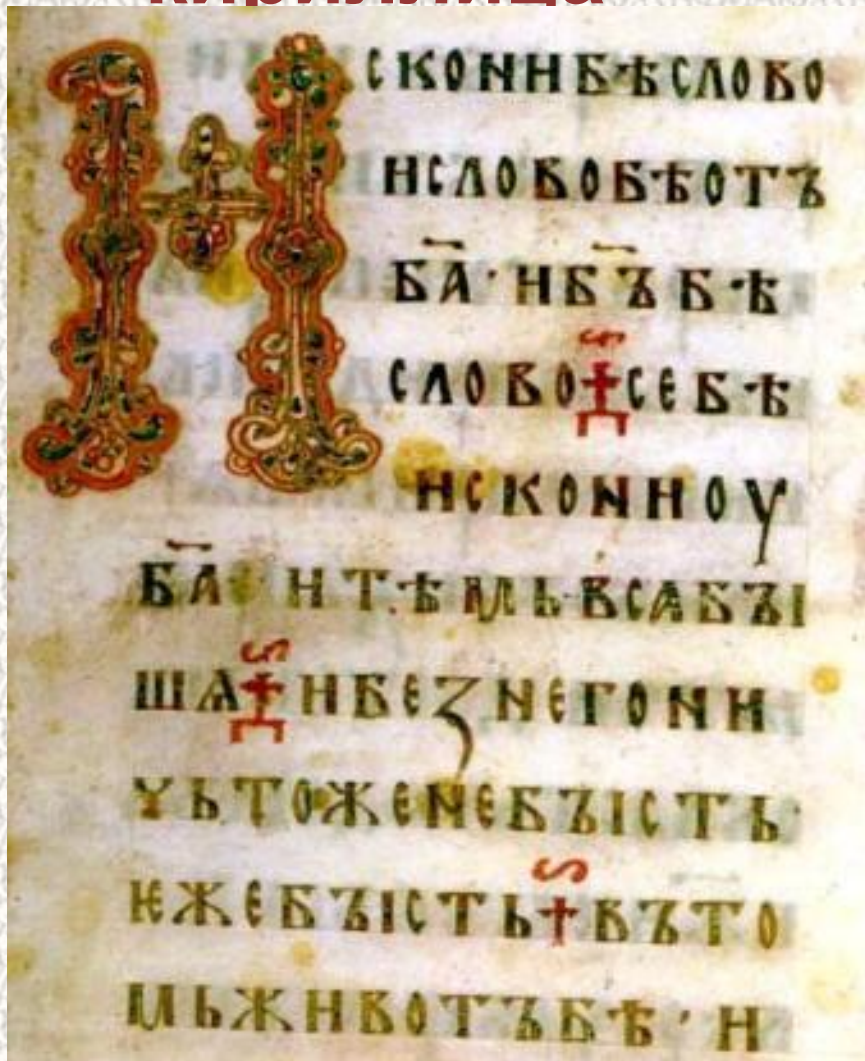 кириллица
Искони бѣ слово
и слово бѣ отъ
б҃а · и б҃ъ бѣ
слово се бѣ
искони оу
б҃а и тѣмь всꙗ бꙑ
шѧ и без него ни
чьтоже не бꙑсть ·
ѥже бꙑсть въ то
мь животъ бѣ · и